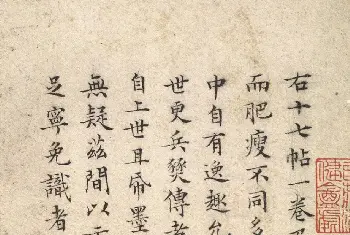 右十七帖一卷
而肥瘦不同多
中自有逸趣
世更兵燹傳
自上世且帋墨
無疑茲間以
足寧免識者